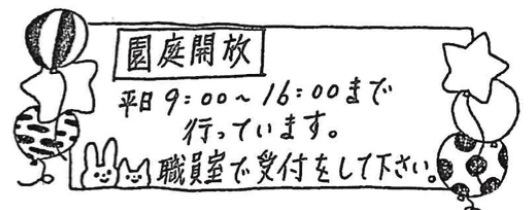 園庭開放
平日9:00～16:00まで
行っています。
職員室で受付をして下さい。